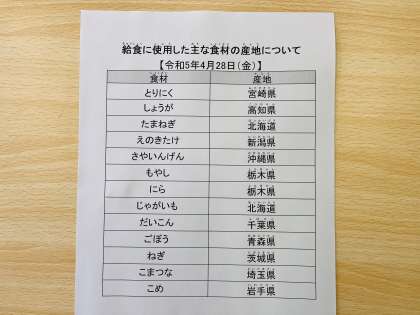 給食に使用した主な食材の産地について
【令和5年4月28日(金)】
食材 産地
とりにく 宮崎県
しょうが 高知県
たまねぎ 北海道
えのきたけ 新潟県
さやいんげん 沖縄県
もやし 栃木県
にら 栃木県
じゃがいも 北海道
だいこん 千葉県
ごぼう 青森県
ねぎ 茨城県
こまつな 埼玉県
こめ 岩手県